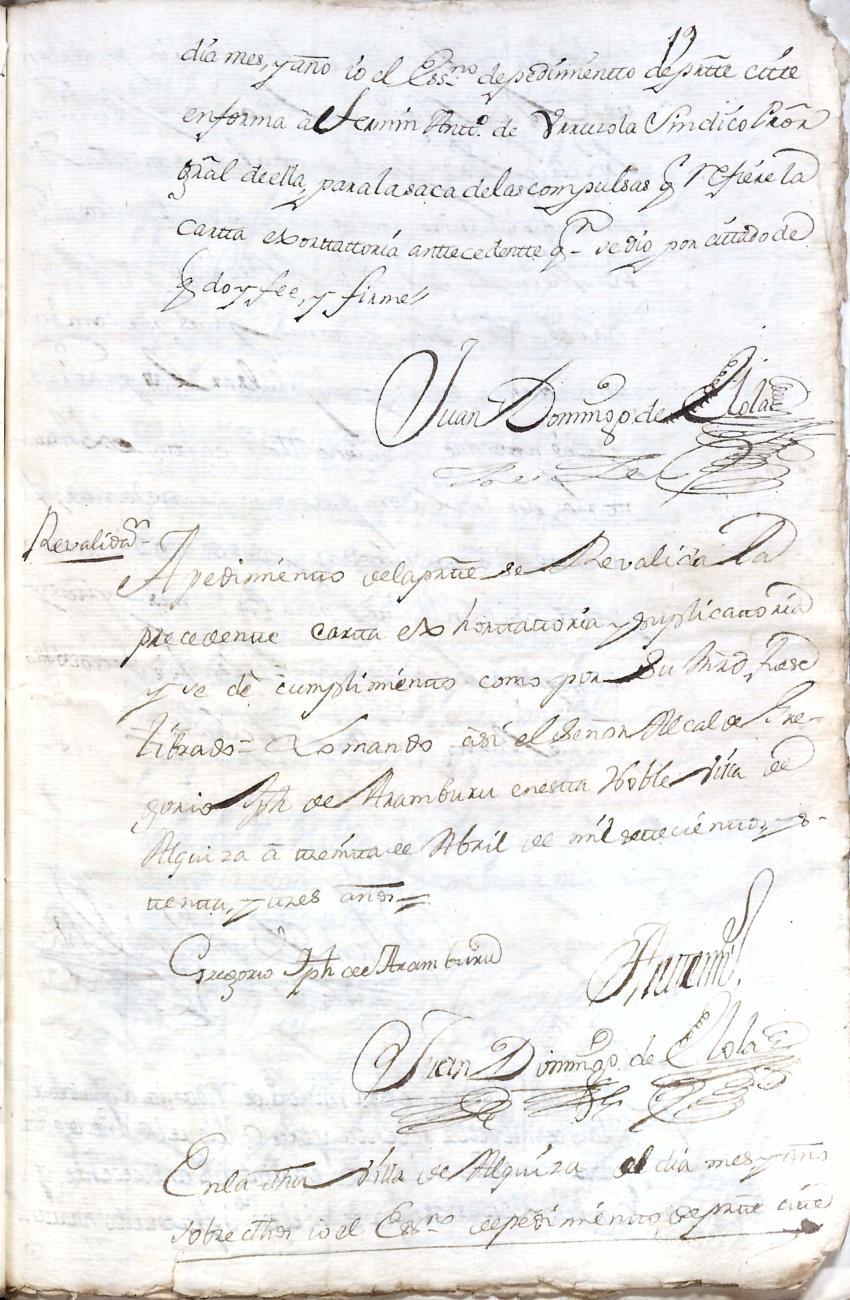 19
dia mes, y año io el Essno de pedimientto de partte citte
en forma â Fermin Antto. de Vrruzola Sindico Prõr
gral de ella, para la saca de las compulsas q̃ refiere la
cartta exorttattoria anttecedentte qn se dio por cittado de
q̃ doy fee, y firme
Juan Domingo de Elola
Revalidaon
A pedimientto de la partte se Revalida la
precedentte cartta exhorttattoria y suplicattoria
y se dè cumplimientto como por su Mrd, fuese
librado = Lo mando asi el señor Alcalde Gre-
gorio Jph de Aramburu en estta Noble Villa de
Alquiza â treintta de Abril de mil settecienttos, y s-
ttentta, y tres años =
Gregorio Jph de Aramburu
Antemi
Juan Domingo de Elola
En la dha Villa de Alquiza el dia mes y año
sobre dhos io el Essno de pedimientto de partte citte